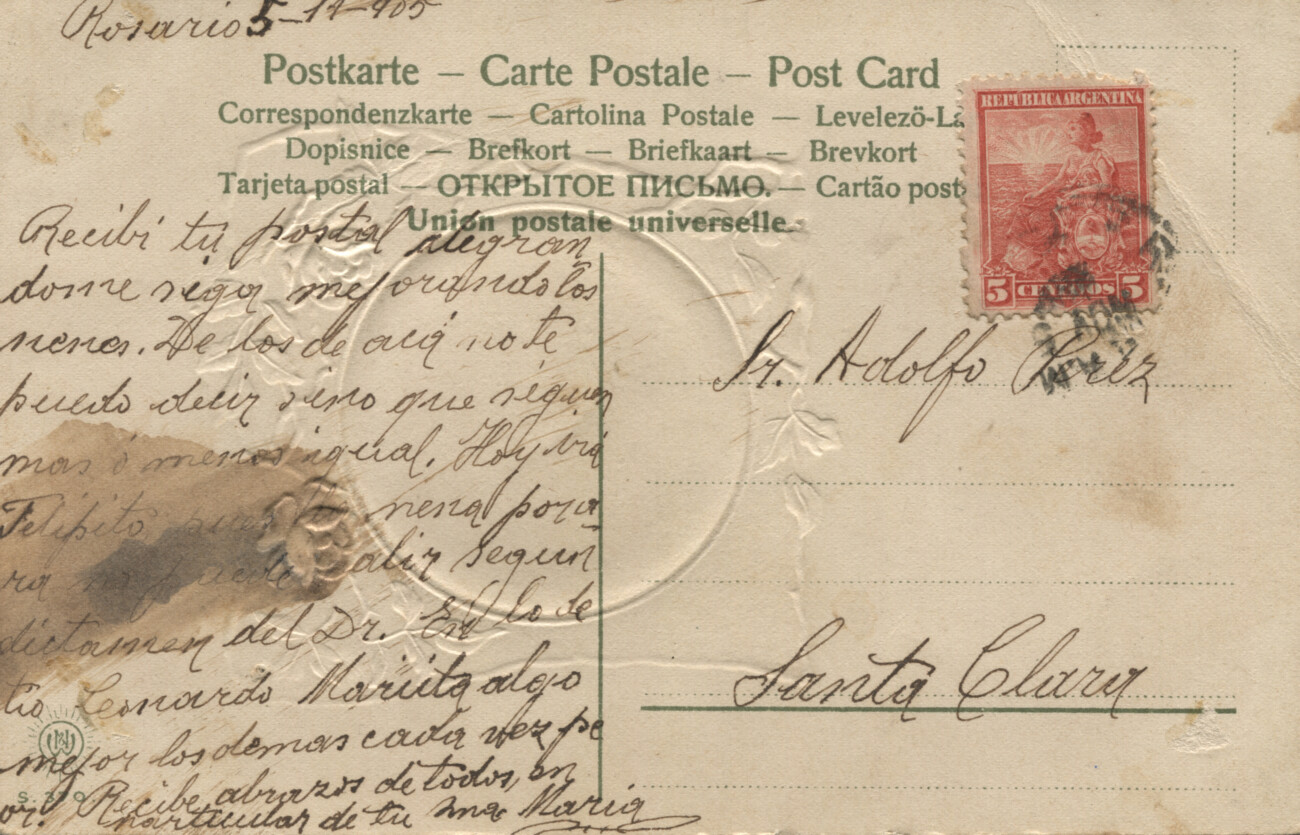 Rosario 5-11-905
Postkarte – Carte Postale – Post Card
Correspondenzkarte – Cartolina Postale – Levelező-La
Dopisnice – Brefkort – Briefkaart – Brevkort
Tarjeta postal – ОТКРЫТОЕ ПИСЬМО. – Cartão post
Union postale universelle.
REPUBLICA ARGENTINA
5 CENTAVOS 5
Recibi tu postal alegran
dome siga mejorando los
nenes. De los de acá no te
puedo decir sino que siguen
mas ó menos igual. Hoy vió
Felipito pues la nena pora
ra no puede salir segun
dictamen del Dr. En lo de
tio Leonardo Maruita algo
mejor los demas cada vez pe
or. Recibe abrazos de todos, en
particular de tu Maria
S. 370
Sr. Adolfo Perez
Santa Clara